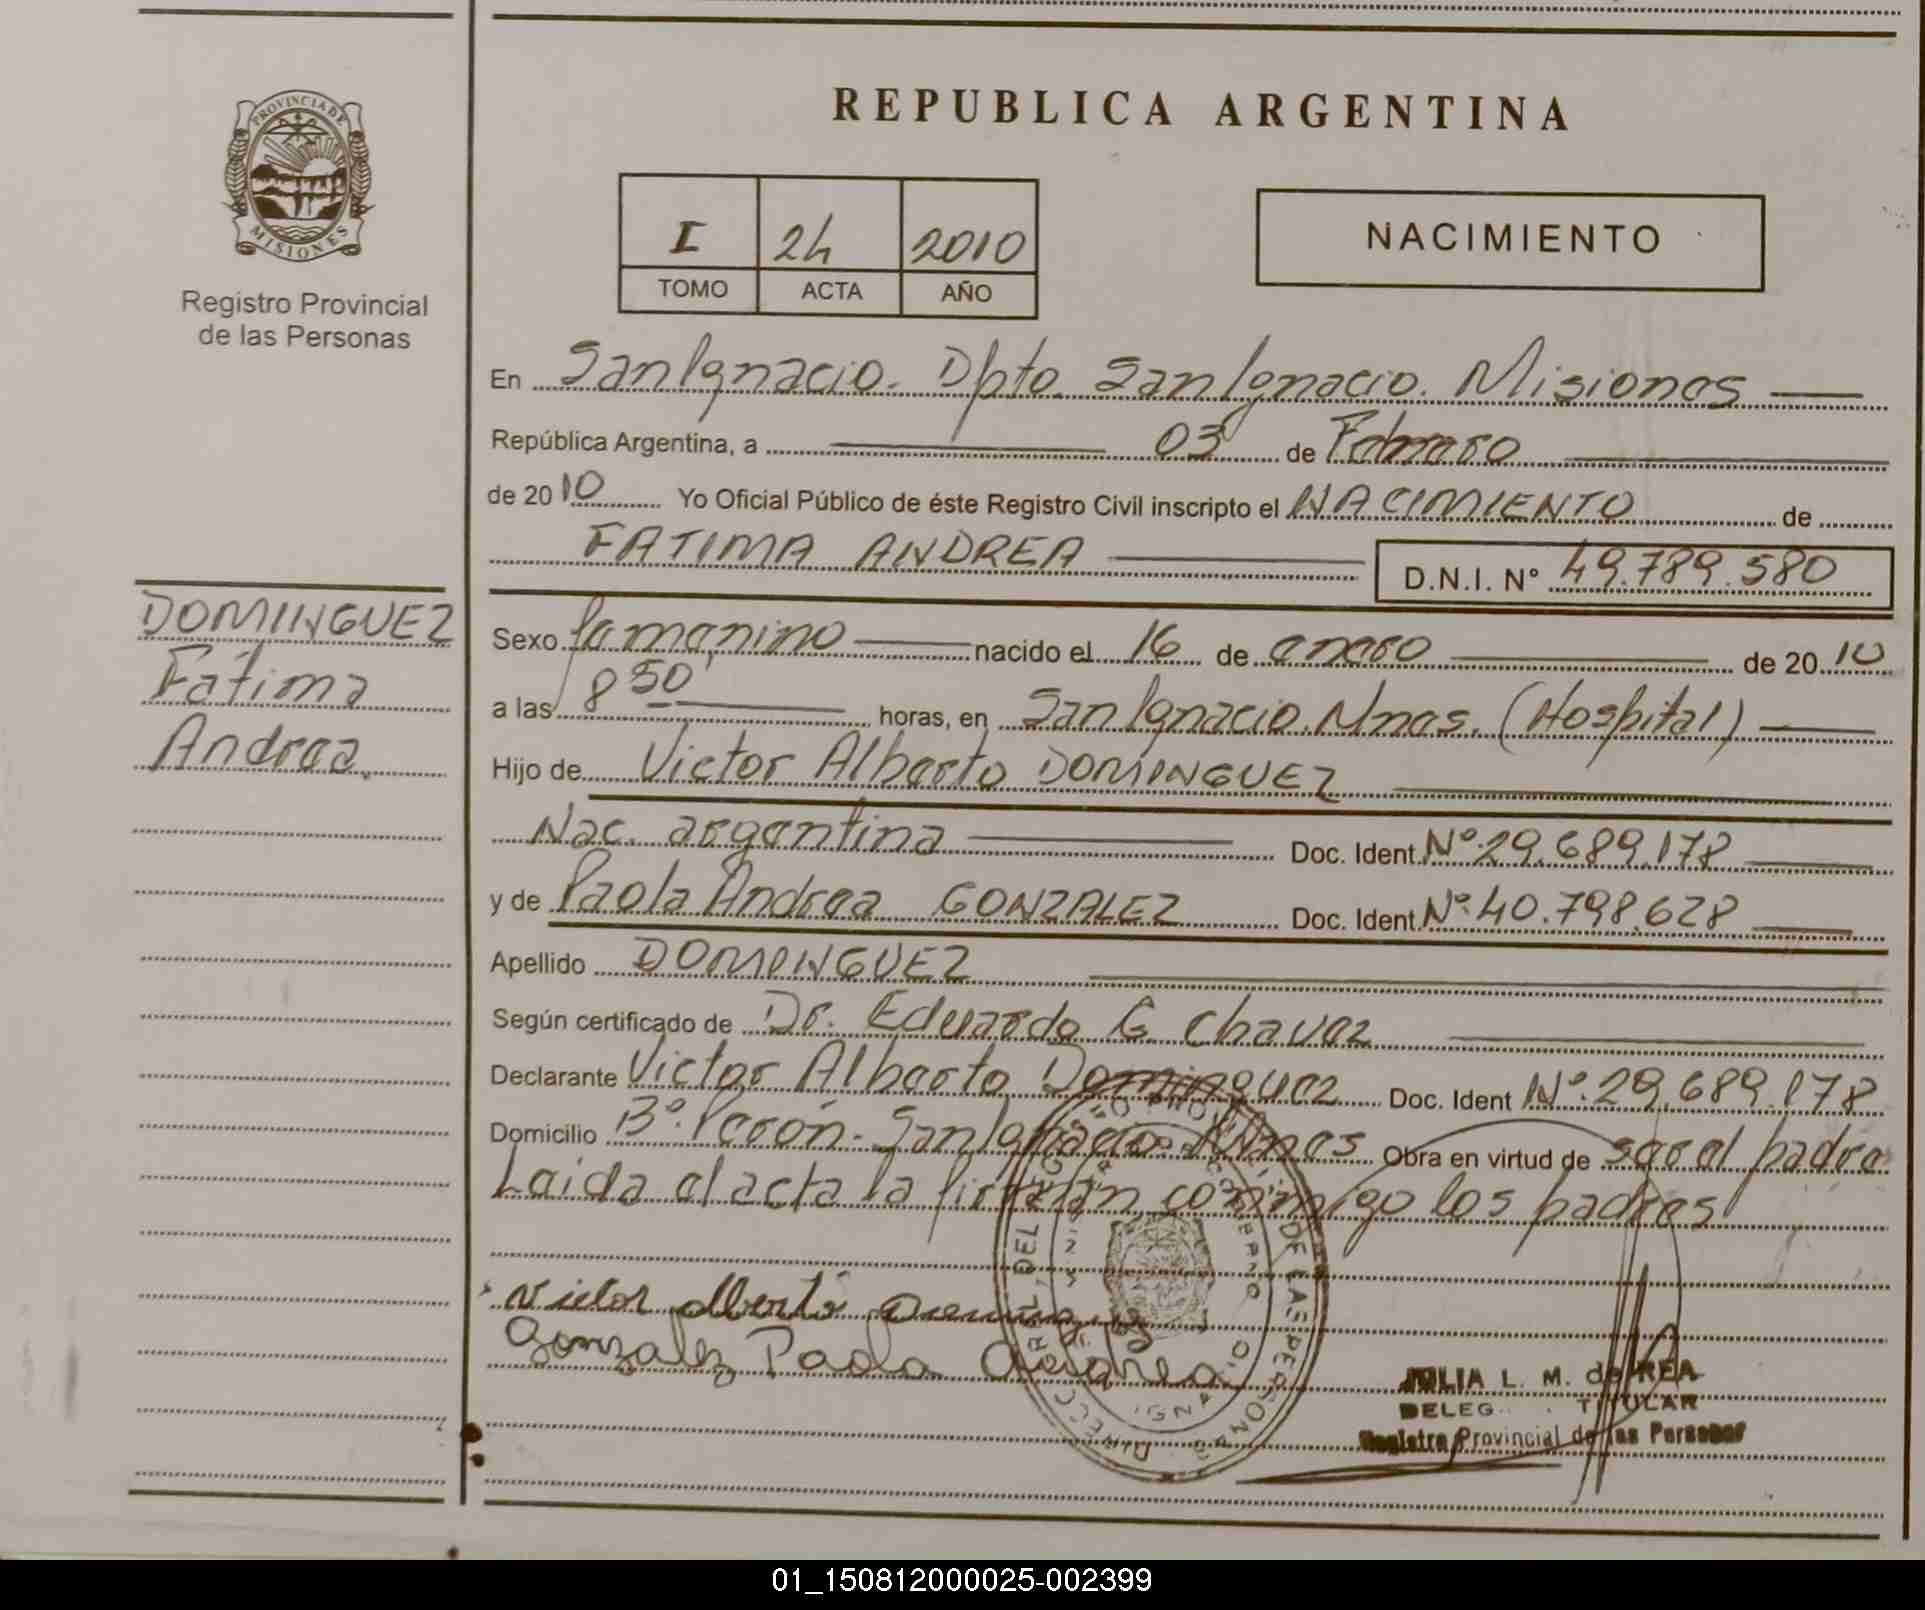 PROVINCIA DE
MISIONES
Registro Provincial
de las Personas
DOMINGUEZ
Fátima
Andrea.
REPUBLICA ARGENTINA
I 24 2010
TOMO ACTA AÑO
NACIMIENTO
En San Ignacio. Dpto. San Ignacio. Misiones
República Argentina, a 03 de Febrero
de 2010 Yo Oficial Público de éste Registro Civil inscripto el NACIMIENTO de
FATIMA ANDREA D.N.I. Nº 49.789.580
Sexo femenino nacido el 16 de enero de 2010
a las 8 50' horas, en San Ignacio. Mnes. (Hospital)
Hijo de Victor Alberto DOMINGUEZ
Nac. argentina Doc. Ident. Nº 29.689.178
y de Paola Andrea GONZALEZ Doc. Ident. Nº 40.798.628
Apellido DOMINGUEZ
Según certificado de Dr. Eduardo G. Chavez
Declarante Victor Alberto Dominguez Doc. Ident Nº. 29.689.178
Domicilio Bº. Perón. San Ignacio. Mnes. Obra en virtud de ser el padre
Leida el acta la firman conmigo los padres
Victor Alberto
Gonzalez Paola Andrea
DE LAS PERSONAS
JULIA L. M. de REA
DELEG. TITULAR
Registro Provincial de las Personas
01_150812000025-002399